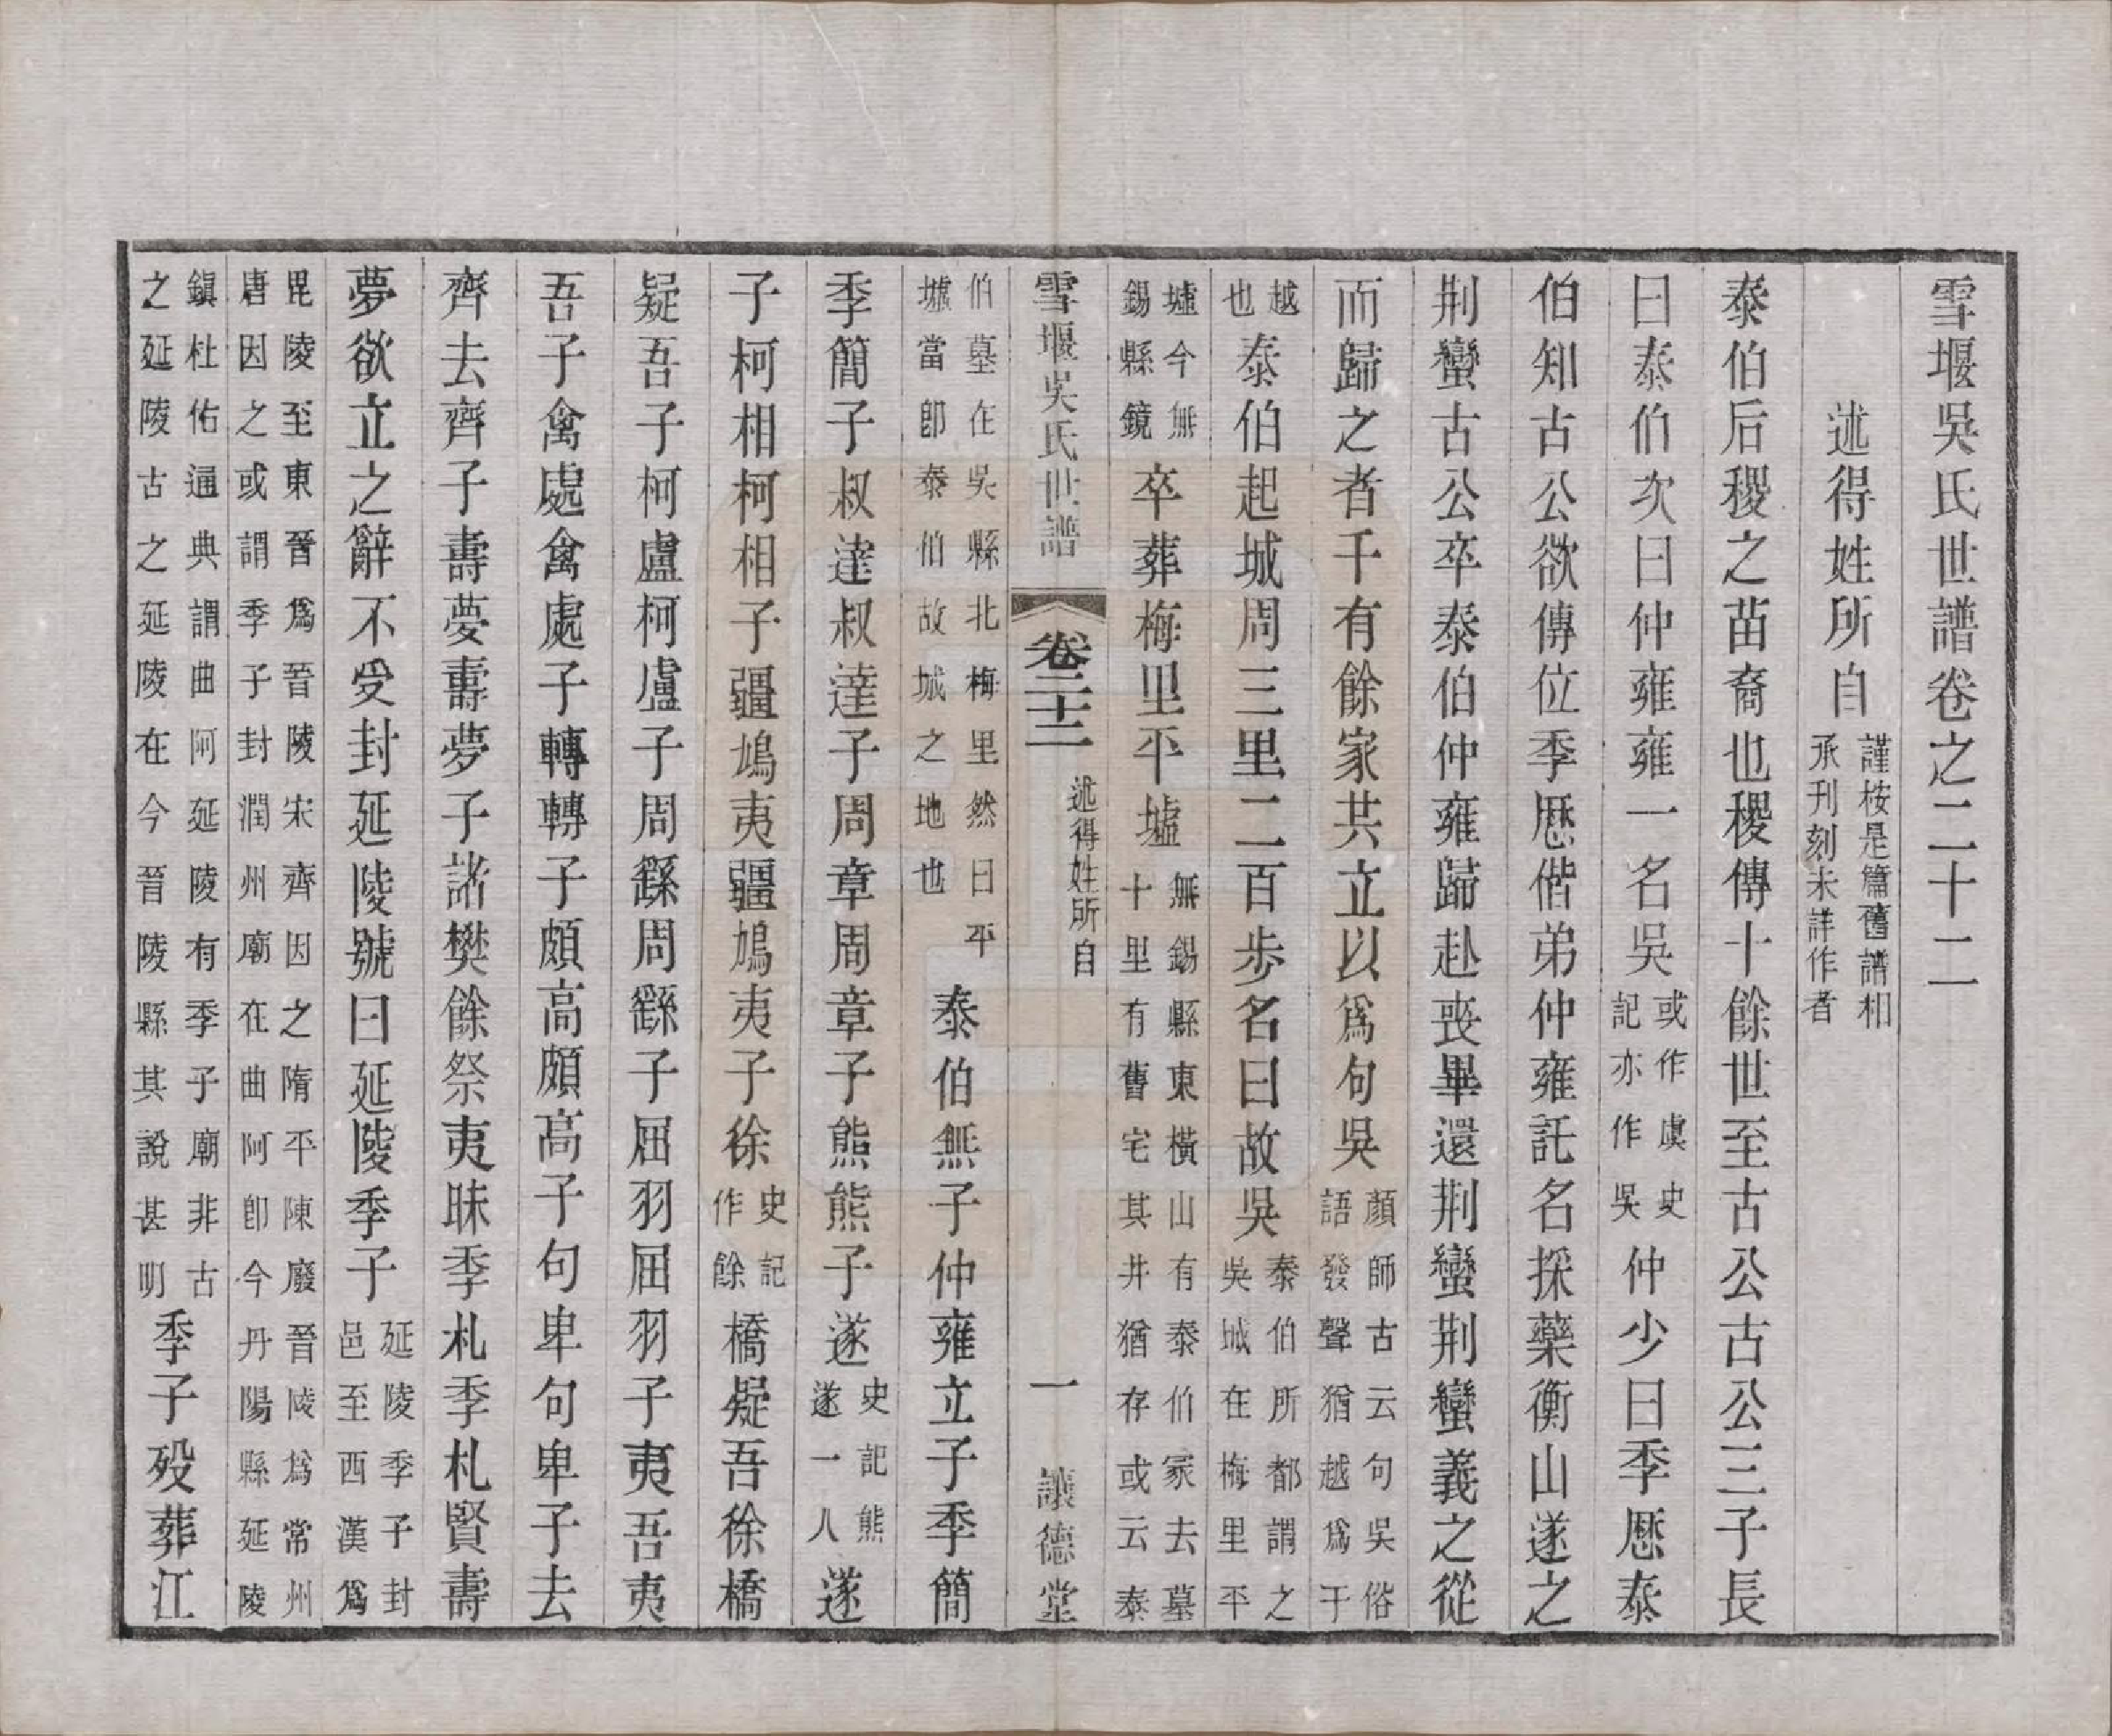 雪堰吳氏世譜卷之二十二
述得姓所自謹按是篇舊譜相承刊刻未詳作者
泰伯后稷之苗裔也稷傳十餘世至古公古公三子長
曰泰伯次曰仲雍雍一名吳或作虞史記亦作吳仲少曰季歷泰
伯知古公欲傳位季歷偕弟仲雍託名採藥衡山遂之
荆蠻古公卒泰伯仲雍歸赴喪畢還荆蠻荆蠻義之從
而歸之者千有餘家共立以爲句吳顏師古云句吳俗語發聲猶越爲于
越也泰伯起城周三里二百步名曰故吳泰伯所都謂之吳城在梅里平
墟今無錫縣鏡卒葬梅里平墟無錫縣東橫山有泰伯冢去墓十里有舊宅其井猶存或云泰
雪堰吳氏世譜 卷二十二 述得姓所自 一 讓德堂
伯墓在吳縣北梅里然曰平墟當卽泰伯故城之地也泰伯無子仲雍立子季簡
季簡子叔達叔達子周章周章子熊熊子遂史記熊遂一人遂
子柯相柯相子疆鳩夷疆鳩夷子徐史記作餘橋疑吾徐橋
疑吾子柯盧柯盧子周繇周繇子屈羽屈羽子夷吾夷
吾子禽處禽處子轉轉子頗高頗高子句卑句卑子去
齊去齊子壽夢壽夢子諸樊餘祭夷昧季札季札賢壽
夢欲立之辭不受封延陵號曰延陵季子延陵季子封邑至西漢爲
毘陵至東晉爲晉陵宋齊因之隋平陳廢晉陵爲常州唐因之或謂季子封潤州廟在曲阿卽今丹陽縣延陵
鎭杜佑通典謂曲阿延陵有季子廟非古之延陵古之延陵在今晉陵縣其說甚明季子歿葬江